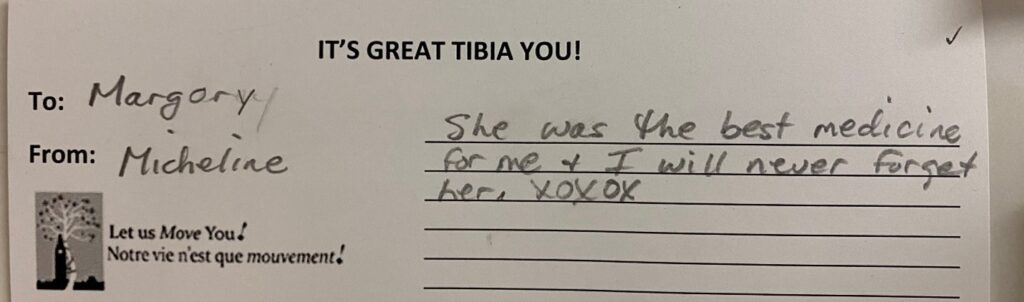 IT'S GREAT TIBIA YOU!
To: Margory
From: Micheline
She was the best medicine
for me + I will never forget
her. XOXOX
Let us Move You!
Notre vie n'est que mouvement!